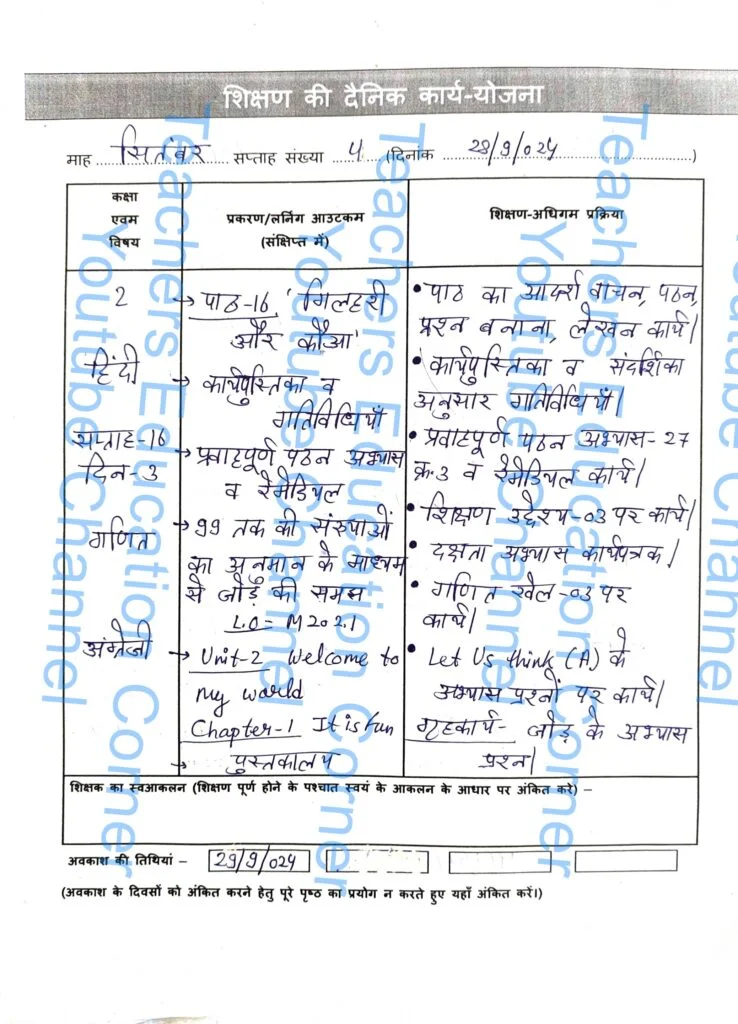 शिक्षण की दैनिक कार्य-योजना
माह सितंबर सप्ताह संख्या 4 (दिनांक 28/9/024)
कक्षा
एवम
विषय
प्रकरण/लर्निंग आउटकम
(संक्षिप्त में)
शिक्षण-अधिगम प्रक्रिया
2
हिंदी
सप्ताह-16
दिन-3
गणित
अंग्रेजी
→ पाठ-16 'गिलहरी
और कौआ'
→ कार्यपुस्तिका व
गतिविधियाँ
→ प्रवाहपूर्ण पठन अभ्यास
व रेमेडियल
→ 99 तक की संख्याओं
का अनुमान के माध्यम
से जोड़ की समझ
L.O = M202.1
→ Unit-2 Welcome to
my world
Chapter-1 It is fun
→ पुस्तकालय
• पाठ का आदर्श वाचन, पठन,
प्रश्न बनाना, लेखन कार्य|
• कार्यपुस्तिका व संदर्शिका
अनुसार गतिविधियाँ|
• प्रवाहपूर्ण पठन अभ्यास-27
क्र.3 व रेमेडियल कार्य|
• शिक्षण उद्देश्य-03 पर कार्य|
• दक्षता अभ्यास कार्यपत्रक|
• गणित खेल-03 पर
कार्य|
• Let Us think (A) के
अभ्यास प्रश्नों पर कार्य|
गृहकार्य- जोड़ के अभ्यास
प्रश्न|
शिक्षक का स्वआकलन (शिक्षण पूर्ण होने के पश्चात स्वयं के आकलन के आधार पर अंकित करे) –
अवकाश की तिथियां – 29/9/024
(अवकाश के दिवसों को अंकित करने हेतु पूरे पृष्ठ का प्रयोग न करते हुए यहाँ अंकित करें।)
Teachers Education Corner
Youtube Channel
Teachers Education Corner
Youtube Channel
Teachers Education Corner
Youtube Channel